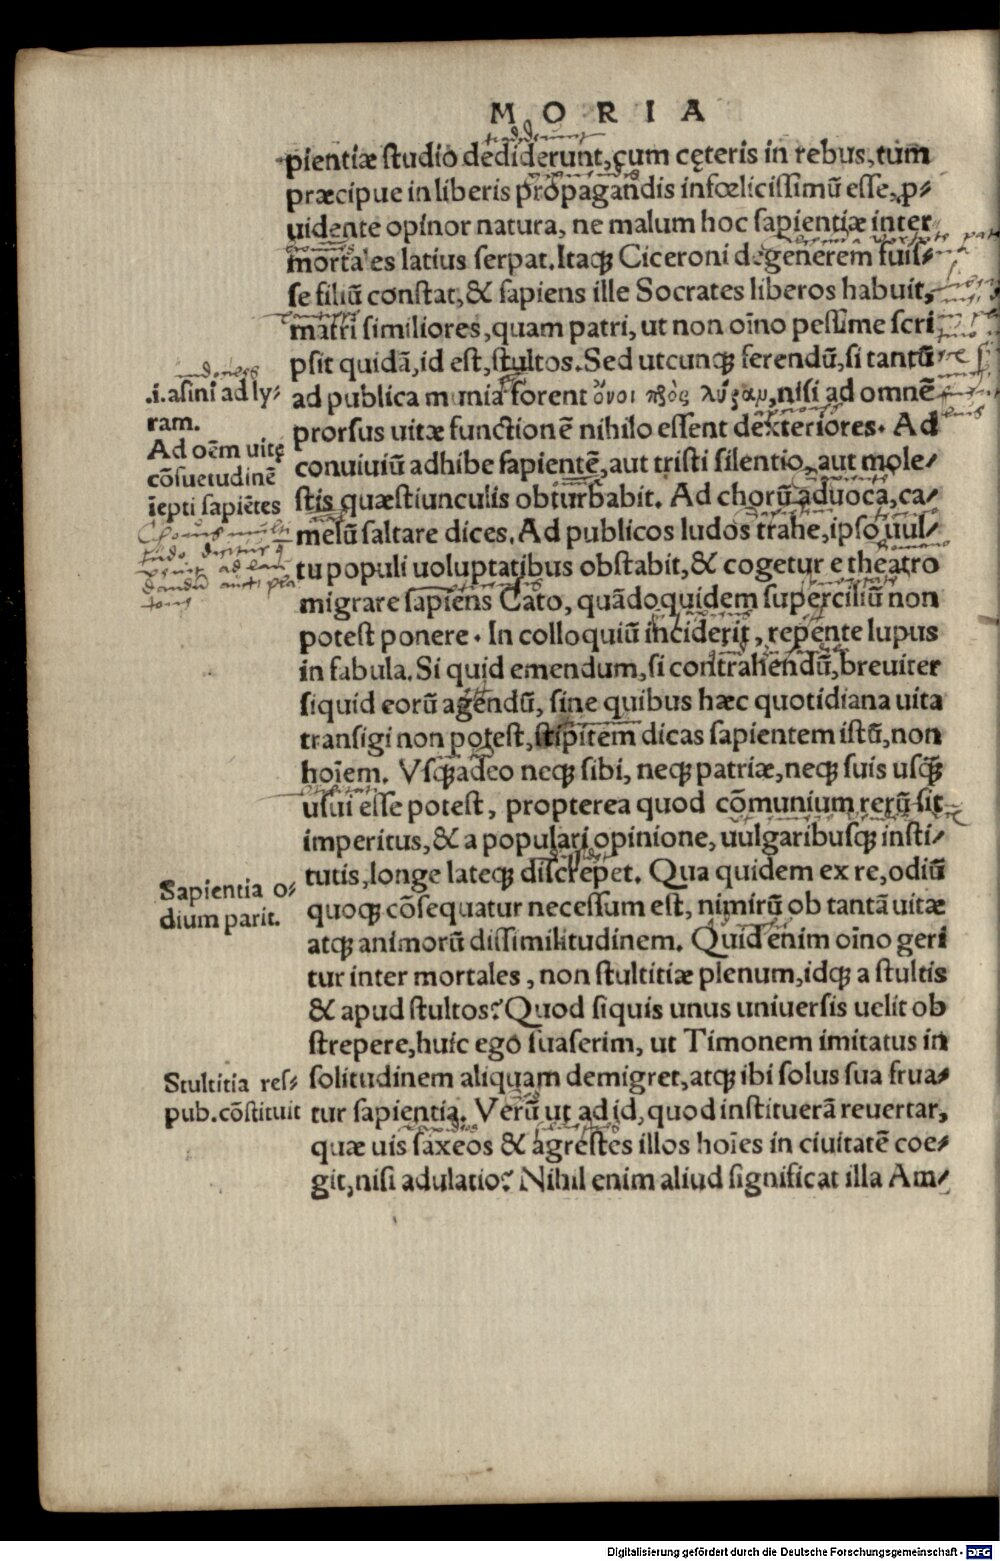 MORIA
pientiæ studio dediderunt, cum cęteris in rebus, tum
præcipue in liberis propagandis infœlicissimū esse, ꝓ⸗
uidente opinor natura, ne malum hoc sapientiæ inter
mortales latius serpat. Itaqꝫ Ciceroni degenerem fuis⸗
se filiū constat, & sapiens ille Socrates liberos habuit,
matri similiores, quam patri, ut non oīno pessime scri
psit quidā, id est, stultos. Sed utcunqꝫ ferendū, si tantū
.i. asini ad ly⸗
ram.
ad publica munia forent ὄνοι πρὸς λύραν, nisi ad omnē
prorsus uitæ functionē nihilo essent dexteriores. Ad
Ad oēm uitę
cōsuetudinē
īepti sapiētes
conuiuiū adhibe sapientē, aut tristi silentio, aut mole⸗
stis quæstiunculis obturbabit. Ad chorū aduoca, ca⸗
melū saltare dices. Ad publicos ludos trahe, ipso uul⸗
tu populi uoluptatibus obstabit, & cogetur e theatro
migrare sapiens Cato, quādoquidem superciliū non
potest ponere. In colloquiū inciderit, repente lupus
in fabula. Si quid emendum, si contrahendū, breuiter
siquid eorū agendū, sine quibus hæc quotidiana uita
transigi non potest, stipitem dicas sapientem istū, non
hoīem. Vsqꝫadeo neqꝫ sibi, neqꝫ patriæ, neqꝫ suis usqꝫ̄
usui esse potest, propterea quod cōmunium rerū sit
imperitus, & a populari opinione, uulgaribusqꝫ insti⸗
tutis, longe lateqꝫ discrepet. Qua quidem ex re, odiū
Sapientia o⸗
dium parit.
quoqꝫ cōsequatur necessum est, nimirū ob tantā uitæ
atqꝫ animorū dissimilitudinem. Quid enim oīno geri
tur inter mortales, non stultitiæ plenum, idqꝫ a stultis
& apud stultos? Quod siquis unus uniuersis uelit ob
strepere, huic ego suaserim, ut Timonem imitatus in
Stultitia res⸗
pub. cōstituit
solitudinem aliquam demigret, atqꝫ ibi solus sua frua⸗
tur sapientia. Verū ut ad id, quod instituerā reuertar,
quæ uis saxeos & agrestes illos hoīes in ciuitatē coe⸗
git, nisi adulatio? Nihil enim aliud significat illa Am⸗
Digitalisierung gefördert durch die Deutsche Forschungsgemeinschaft - DFG